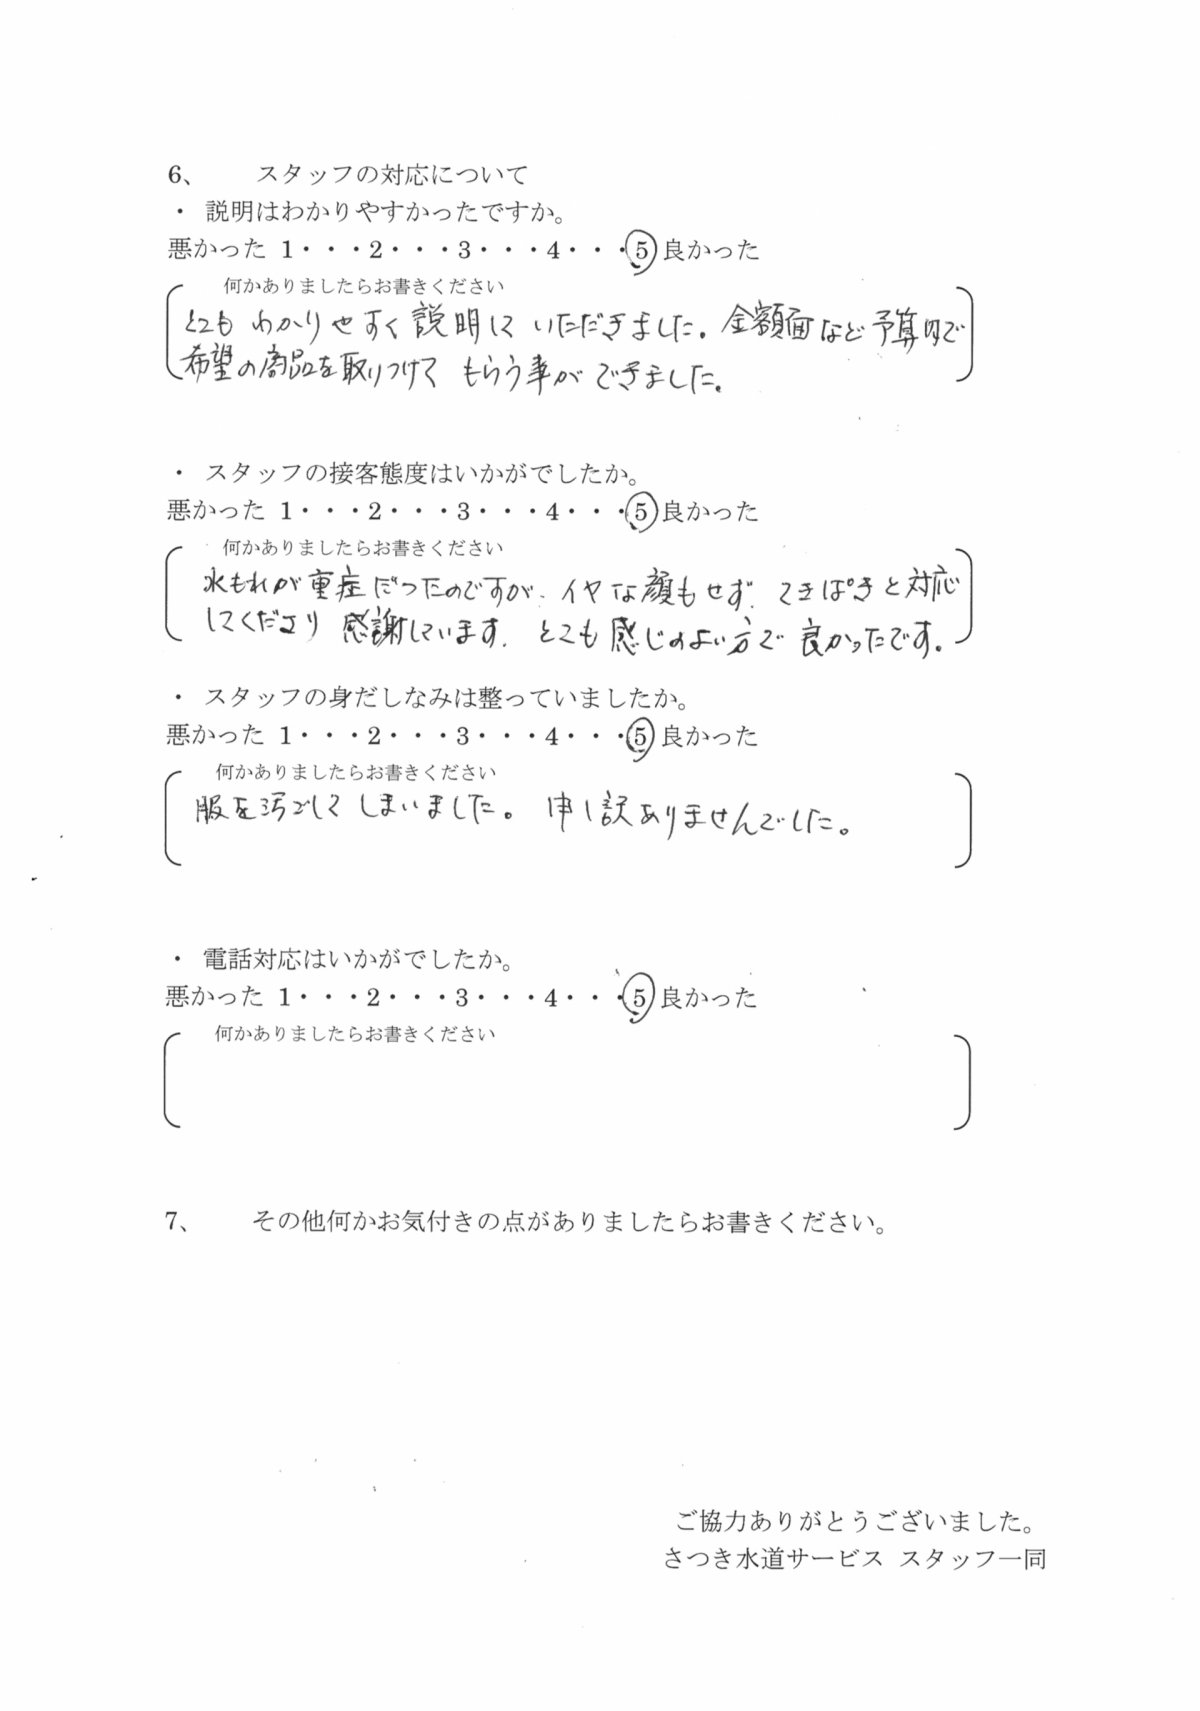 6、 スタッフの対応について
・ 説明はわかりやすかったですか。
悪かった 1・・・2・・・3・・・4・・・5 良かった
何かありましたらお書きください
とてもわかりやすく説明していただきました。金額面など予算内で
希望の商品を取りつけてもらう事ができました。
・ スタッフの接客態度はいかがでしたか。
悪かった 1・・・2・・・3・・・4・・・5 良かった
何かありましたらお書きください
水もれが重症だったのですが、イヤな顔もせず、てきぱきと対応
してくださり感謝しています。とても感じのよい方で良かったです。
・ スタッフの身だしなみは整っていましたか。
悪かった 1・・・2・・・3・・・4・・・5 良かった
何かありましたらお書きください
服を汚ごしてしまいました。申し訳ありませんでした。
・ 電話対応はいかがでしたか。
悪かった 1・・・2・・・3・・・4・・・5 良かった
何かありましたらお書きください
7、 その他何かお気付きの点がありましたらお書きください。
ご協力ありがとうございました。
さつき水道サービス スタッフ一同